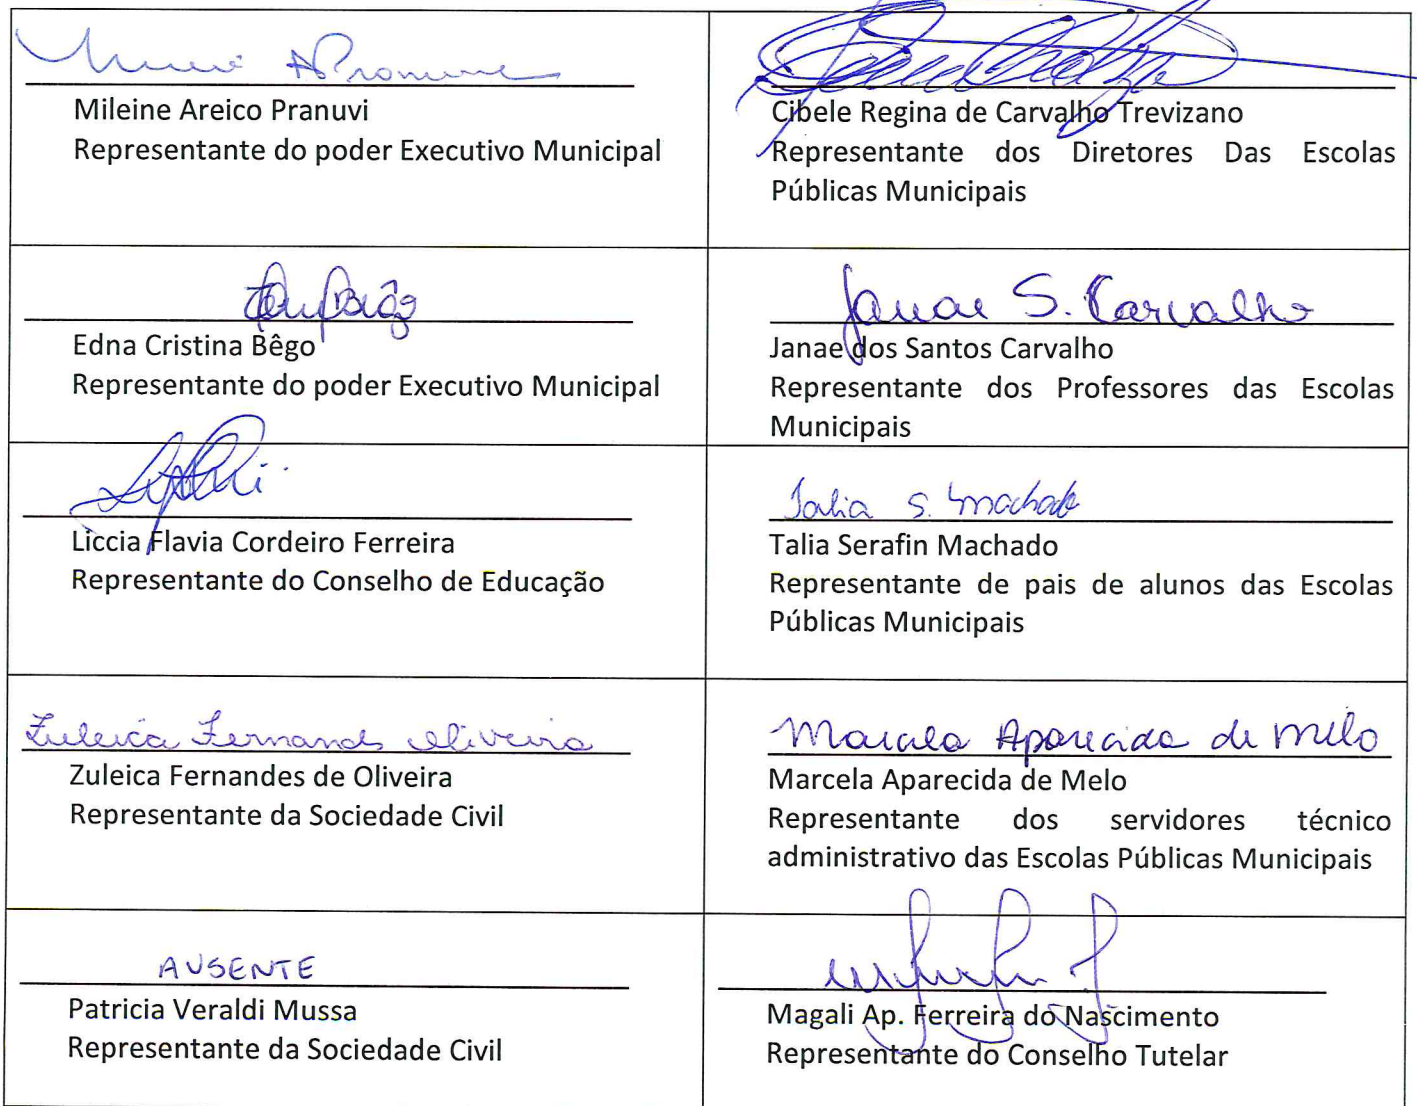 Mileine Areico Pranuvi
Representante do poder Executivo Municipal
Cibele Regina de Carvalho Trevizano
Representante dos Diretores Das Escolas
Públicas Municipais
Edna Cristina Bêgo
Representante do poder Executivo Municipal
Janae S. Carvalho
Janae dos Santos Carvalho
Representante dos Professores das Escolas
Municipais
Liccia Flavia Cordeiro Ferreira
Representante do Conselho de Educação
Talia S. Machado
Talia Serafin Machado
Representante de pais de alunos das Escolas
Públicas Municipais
Zuleica Fernandes Oliveira
Zuleica Fernandes de Oliveira
Representante da Sociedade Civil
Marcela Aparecida de Melo
Marcela Aparecida de Melo
Representante dos servidores técnico
administrativo das Escolas Públicas Municipais
AUSENTE
Patricia Veraldi Mussa
Representante da Sociedade Civil
Magali Ap. Ferreira do Nascimento
Representante do Conselho Tutelar